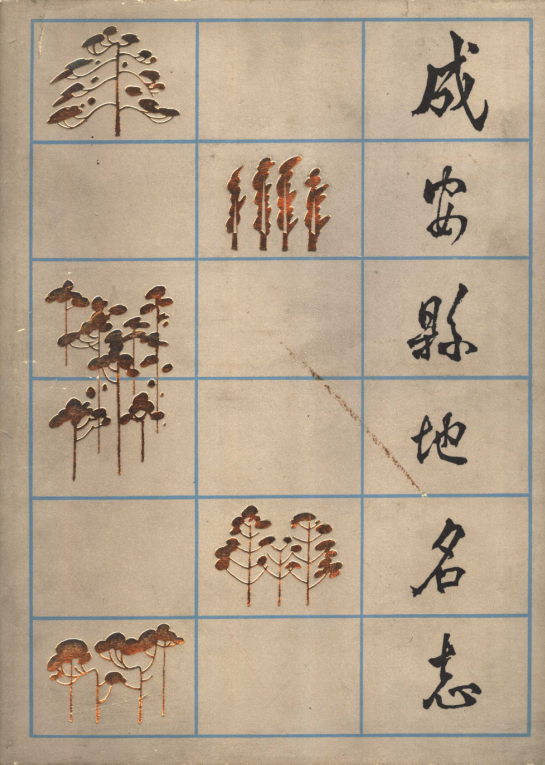 成安縣地名志